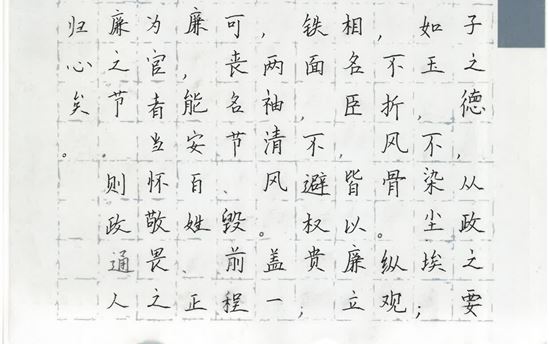 子之德，从政之要
如玉，不染尘埃；
，不折风骨。纵观
相名臣，皆以廉立
铁面，不避权贵；
，两袖清风。盖一
可丧名节、毁前程
廉，能安百姓、正
为官者当怀敬畏之
廉之节。则政通人
归心矣。